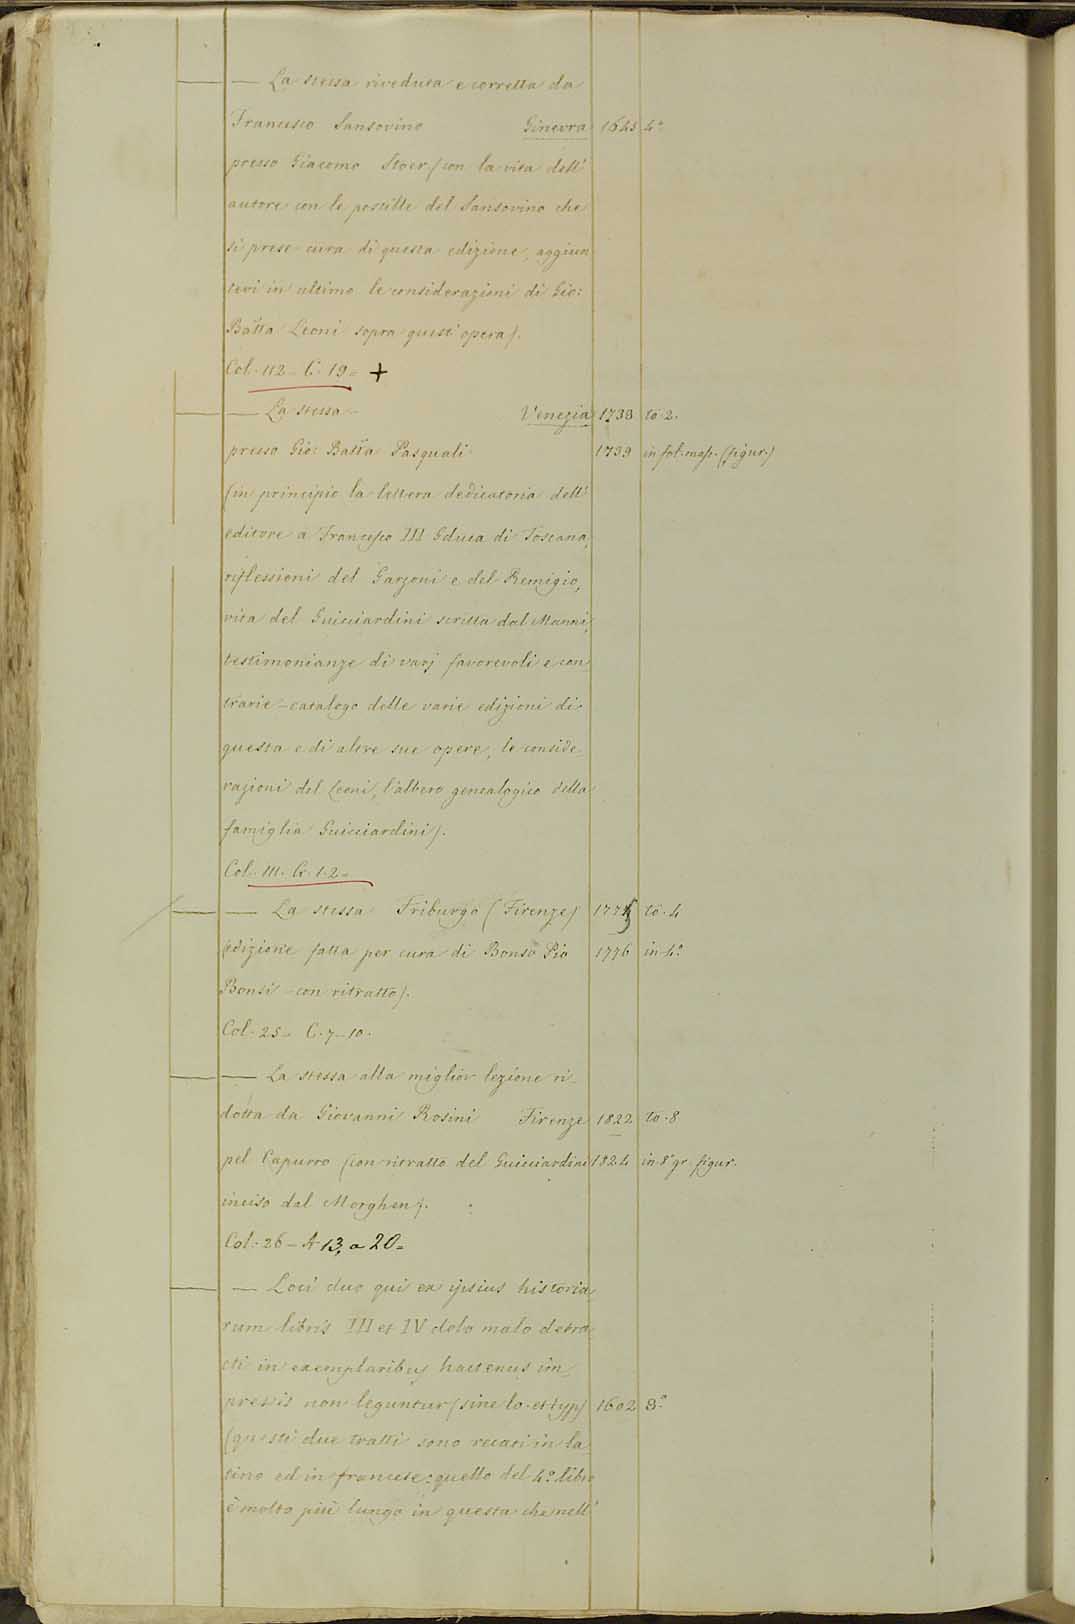 — La stessa riveduta e corretta da
Francesco Sansovino Ginevra 1645 4º
presso Giacomo Stoer (con la vita dell'
autore con le postille del Sansovino che
si prese cura di questa edizione, aggiun
tevi in ultimo le considerazioni di Gio:
Batta Leoni sopra quest'opera).
Col. 112 – C. 19 = +
— La stessa – Venezia 1738 to 2.
presso Gio: Batta Pasquali 1739 in fol. mass. (figur.)
(in principio la lettera dedicatoria dell'
editore a Francesco III Gduca di Toscana,
riflessioni del Garzoni e del Remigio,
vita del Guicciardini scritta dal Manni,
testimonianze di varj favorevoli e con
trarie – catalogo delle varie edizioni di
questa e di altre sue opere, le conside
razioni del Leoni, l'albero genealogico della
famiglia Guicciardini).
Col. 111. C. 1. 2 =
— La stessa Friburgo (Firenze) 1775 to. 4
edizione fatta per cura di Bonso Pio 1776 in 4º
Bonsi – con ritratto).
Col. 25 – C. 7 – 10.
— La stessa alla miglior lezione ri
dotta da Giovanni Rosini Firenze 1822 to. 8
pel Capurro (con ritratto del Guicciardini 1824 in 8º gr. figur.
inciso dal Morghen).
Col. 26 – A 13, a 20 =
— Loci duo qui ex ipsius historia,
rum libris III et IV dolo malo detra
cti in exemplaribus hactenus im
pressis non leguntur (sine lo. et typ) 1602 8º
(questi due tratti sono recati in la
tino ed in francese: quello del 4º libro
è molto più lungo in questa che nell'